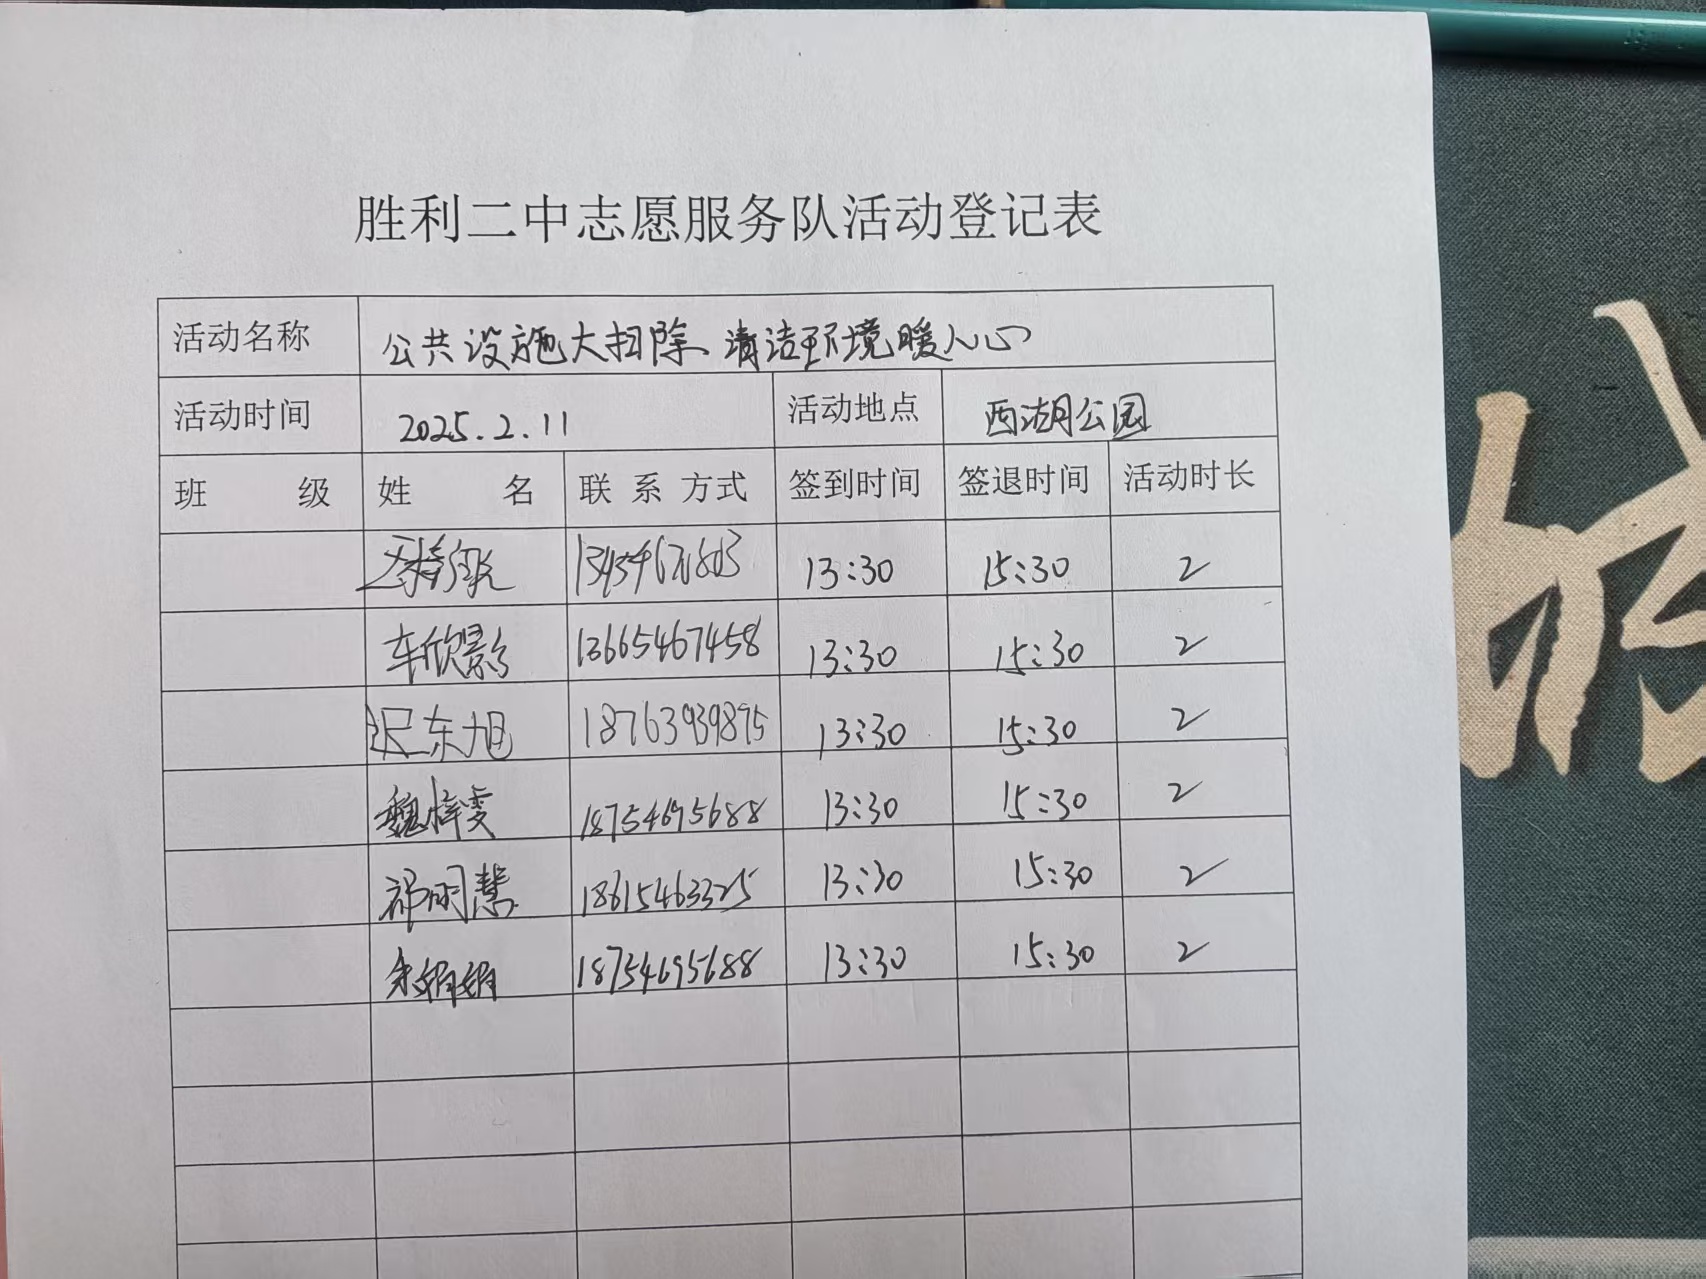 胜利二中志愿服务队活动登记表
活动名称 公共设施大扫除 清洁环境暖人心
活动时间 2025.2.11 活动地点 西湖公园
班 级 姓 名 联系方式 签到时间 签退时间 活动时长
13:30 15:30 2
车欣影 13665467458 13:30 15:30 2
迟东旭 18763939895 13:30 15:30 2
魏梓雯 18754695688 13:30 15:30 2
祁明慧 18615463325 13:30 15:30 2
朱娟娟 18754695688 13:30 15:30 2